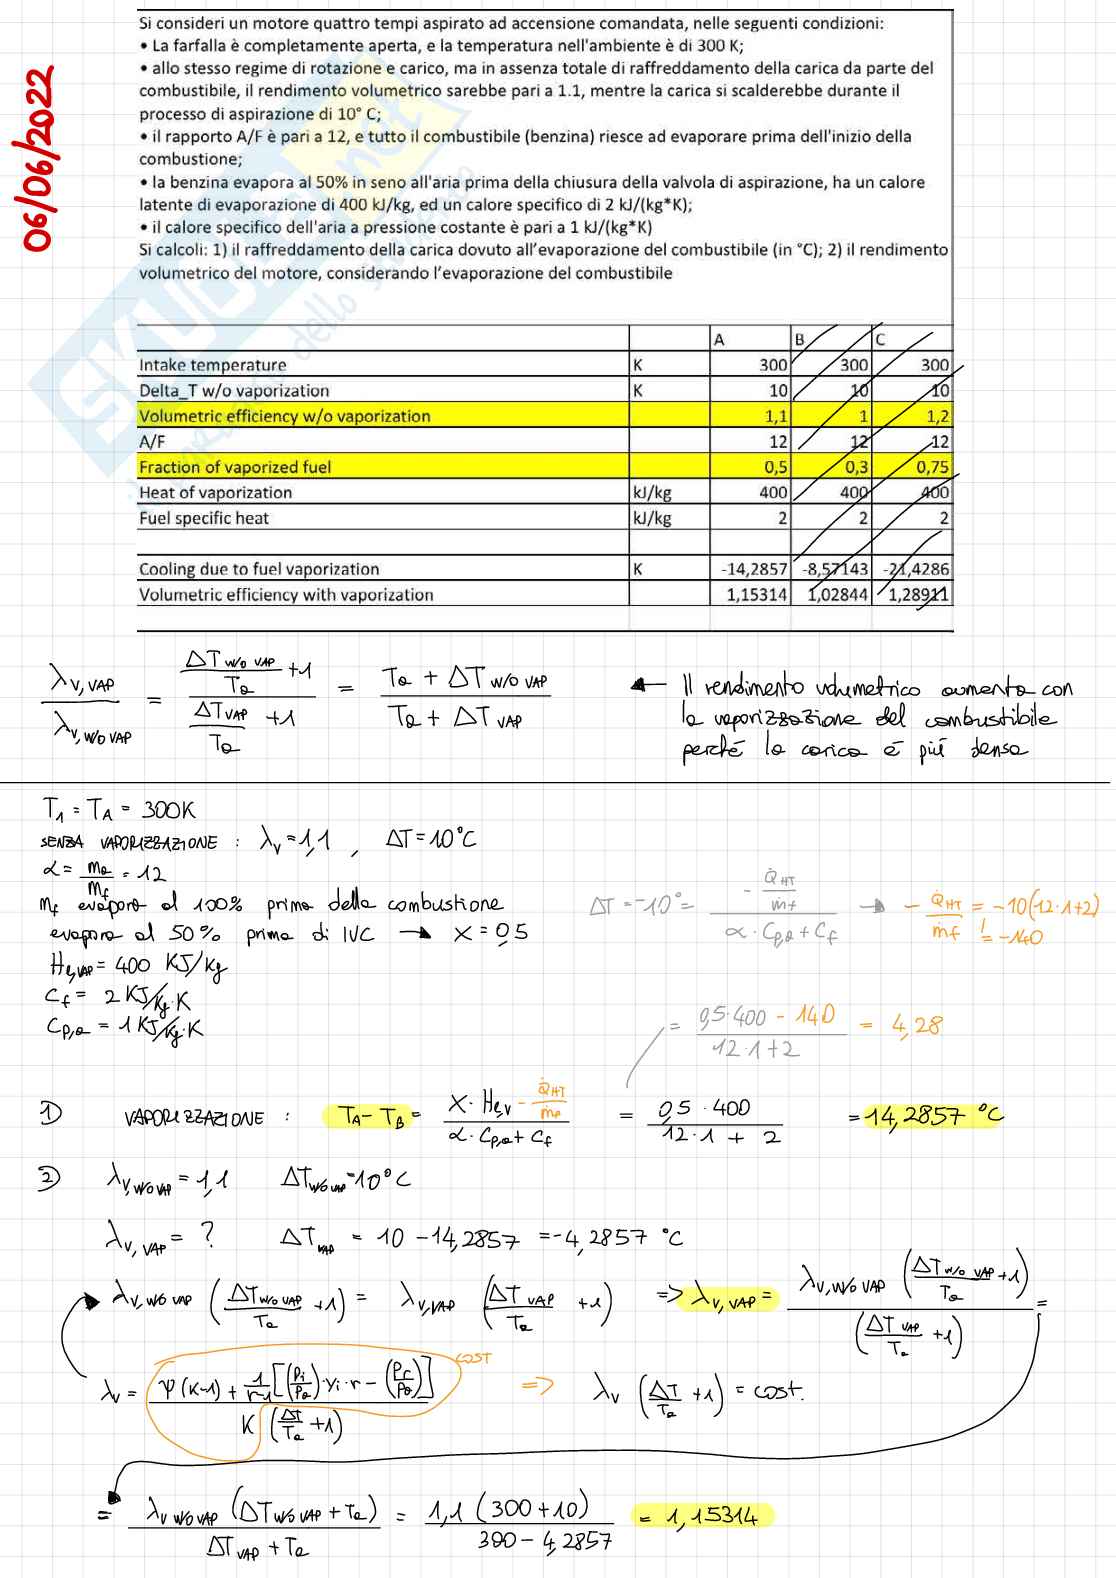 06/06/2022
Si consideri un motore quattro tempi aspirato ad accensione comandata, nelle seguenti condizioni:
• La farfalla è completamente aperta, e la temperatura nell'ambiente è di 300 K;
• allo stesso regime di rotazione e carico, ma in assenza totale di raffreddamento della carica da parte del
combustibile, il rendimento volumetrico sarebbe pari a 1.1, mentre la carica si scalderebbe durante il
processo di aspirazione di 10° C;
• il rapporto A/F è pari a 12, e tutto il combustibile (benzina) riesce ad evaporare prima dell'inizio della
combustione;
• la benzina evapora al 50% in seno all'aria prima della chiusura della valvola di aspirazione, ha un calore
latente di evaporazione di 400 kJ/kg, ed un calore specifico di 2 kJ/(kg*K);
• il calore specifico dell'aria a pressione costante è pari a 1 kJ/(kg*K)
Si calcoli: 1) il raffreddamento della carica dovuto all'evaporazione del combustibile (in °C); 2) il rendimento
volumetrico del motore, considerando l'evaporazione del combustibile
A B C
Intake temperature K 300 300 300
Delta_T w/o vaporization K 10 10 10
Volumetric efficiency w/o vaporization 1,1 1 1,2
A/F 12 12 12
Fraction of vaporized fuel 0,5 0,3 0,75
Heat of vaporization kJ/kg 400 400 400
Fuel specific heat kJ/kg 2 2 2
Cooling due to fuel vaporization K -14,2857 -8,57143 -21,4286
Volumetric efficiency with vaporization 1,15314 1,02844 1,28911
λv,VAP / λv,W/O VAP = (ΔT W/O VAP / Ta + 1) / (ΔT VAP / Ta + 1) = (Ta + ΔT W/O VAP) / (Ta + ΔT VAP)
← Il rendimento volumetrico aumenta con
la vaporizzazione del combustibile
perché la carica è più densa
T1 = TA = 300K
SENZA VAPORIZZAZIONE : λv = 1,1 , ΔT = 10°C
α = ma / mf = 12
mf evapora al 100% prima della combustione
evapora al 50% prima di IVC → X = 0,5
He,VAP = 400 KJ/Kg
Cf = 2 KJ/Kg·K
Cp,a = 1 KJ/Kg·K
ΔT = -10° = (- Q̇HT / ṁf) / (α · Cp,a + Cf) → - Q̇HT / ṁf = -10(12·1+2)
! = -140
= (0,5·400 - 140) / (12·1+2) = 4,28
1) VAPORIZZAZIONE : TA - TB = (X · He,v - Q̇HT / ṁf) / (α · Cp,a + Cf) = (0,5 · 400) / (12·1 + 2) = 14,2857 °C
2) λv,W/O VAP = 1,1 ΔT W/O VAP = 10°C
λv,VAP = ? ΔT VAP = 10 - 14,2857 = -4,2857 °C
λv,W/O VAP (ΔT W/O VAP / Ta + 1) = λv,VAP (ΔT VAP / Ta + 1) => λv,VAP = λv,W/O VAP (ΔT W/O VAP / Ta + 1) / (ΔT VAP / Ta + 1) =
λv = (Ψ(K-1) + 1/(r-1) [(Pi/Pa)·γi·r - (Pr/Pa)]) / (K (ΔT/Ta + 1)) COST => λv (ΔT/Ta + 1) = cost.
= λv W/O VAP (ΔT W/O VAP + Ta) / (ΔT VAP + Ta) = 1,1 (300+10) / (300 - 4,2857) = 1,15314